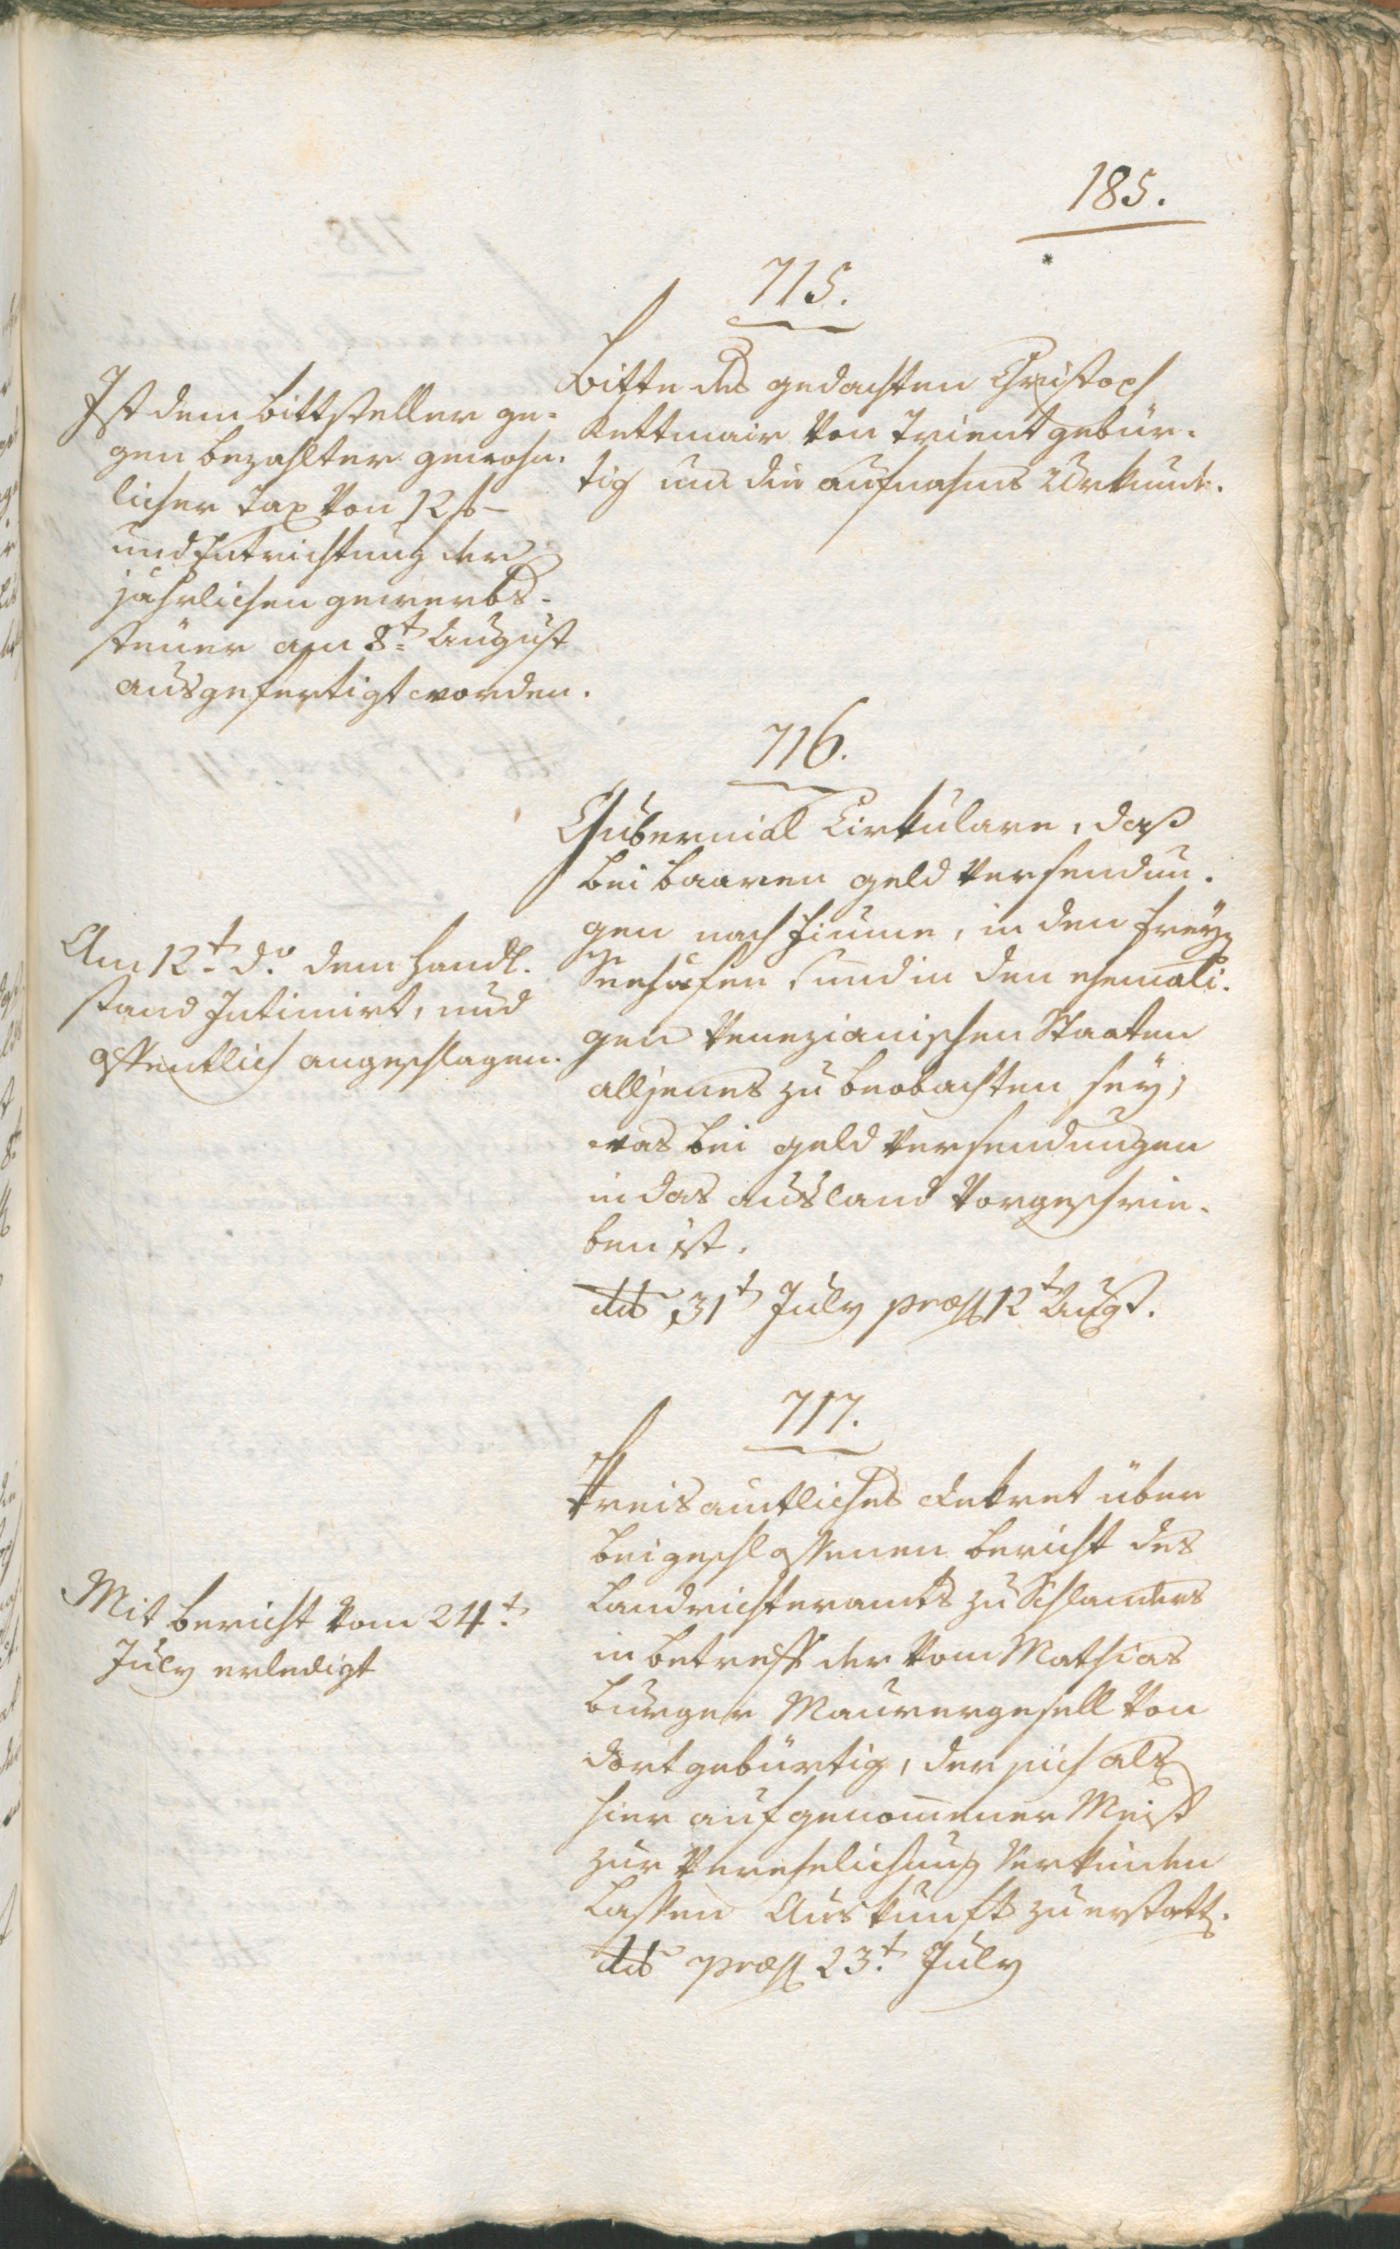 185.
715.
Bitte des gedachten Christoph
Kettmair von Trient gebür-
tig um die Aufnahms Urkunde.
Ist dem Bittsteller ge-
gen bezahlter gewohn-
licher Tax von 12 f –
und Entrichtung der
jährlichen Gewerbs-
steuer am 8t August
ausgefertigt worden.
716.
Gubernial Cirkulare, daß
bei baaren Geld Versendun-
gen nach Fiume, in den Frey-
Seehäfen, und in den ehemali-
gen Venezianischen Staaten
alljenes zu beobachten sey,
was bei Geld Versendungen
in das Ausland vorgeschrie-
ben ist.
dtd 31t July præs 12t Augst.
Am 12t do dem Handl-
stand Intimirt, und
öffentlich angeschlagen.
717.
Kreisamtliches Dekret über
beigeschlossenen Bericht des
Landrichteramts zu Schlanders
in betreff der vom Mathias
Burger Maurergesell von
dort gebürtig, der sich als
hier aufgenommener Meist
zur Verehelichung verkünden
lassen Auskunft zu erstatt.
dtd præs 23t July
Mit Bericht vom 24t
July erledigt